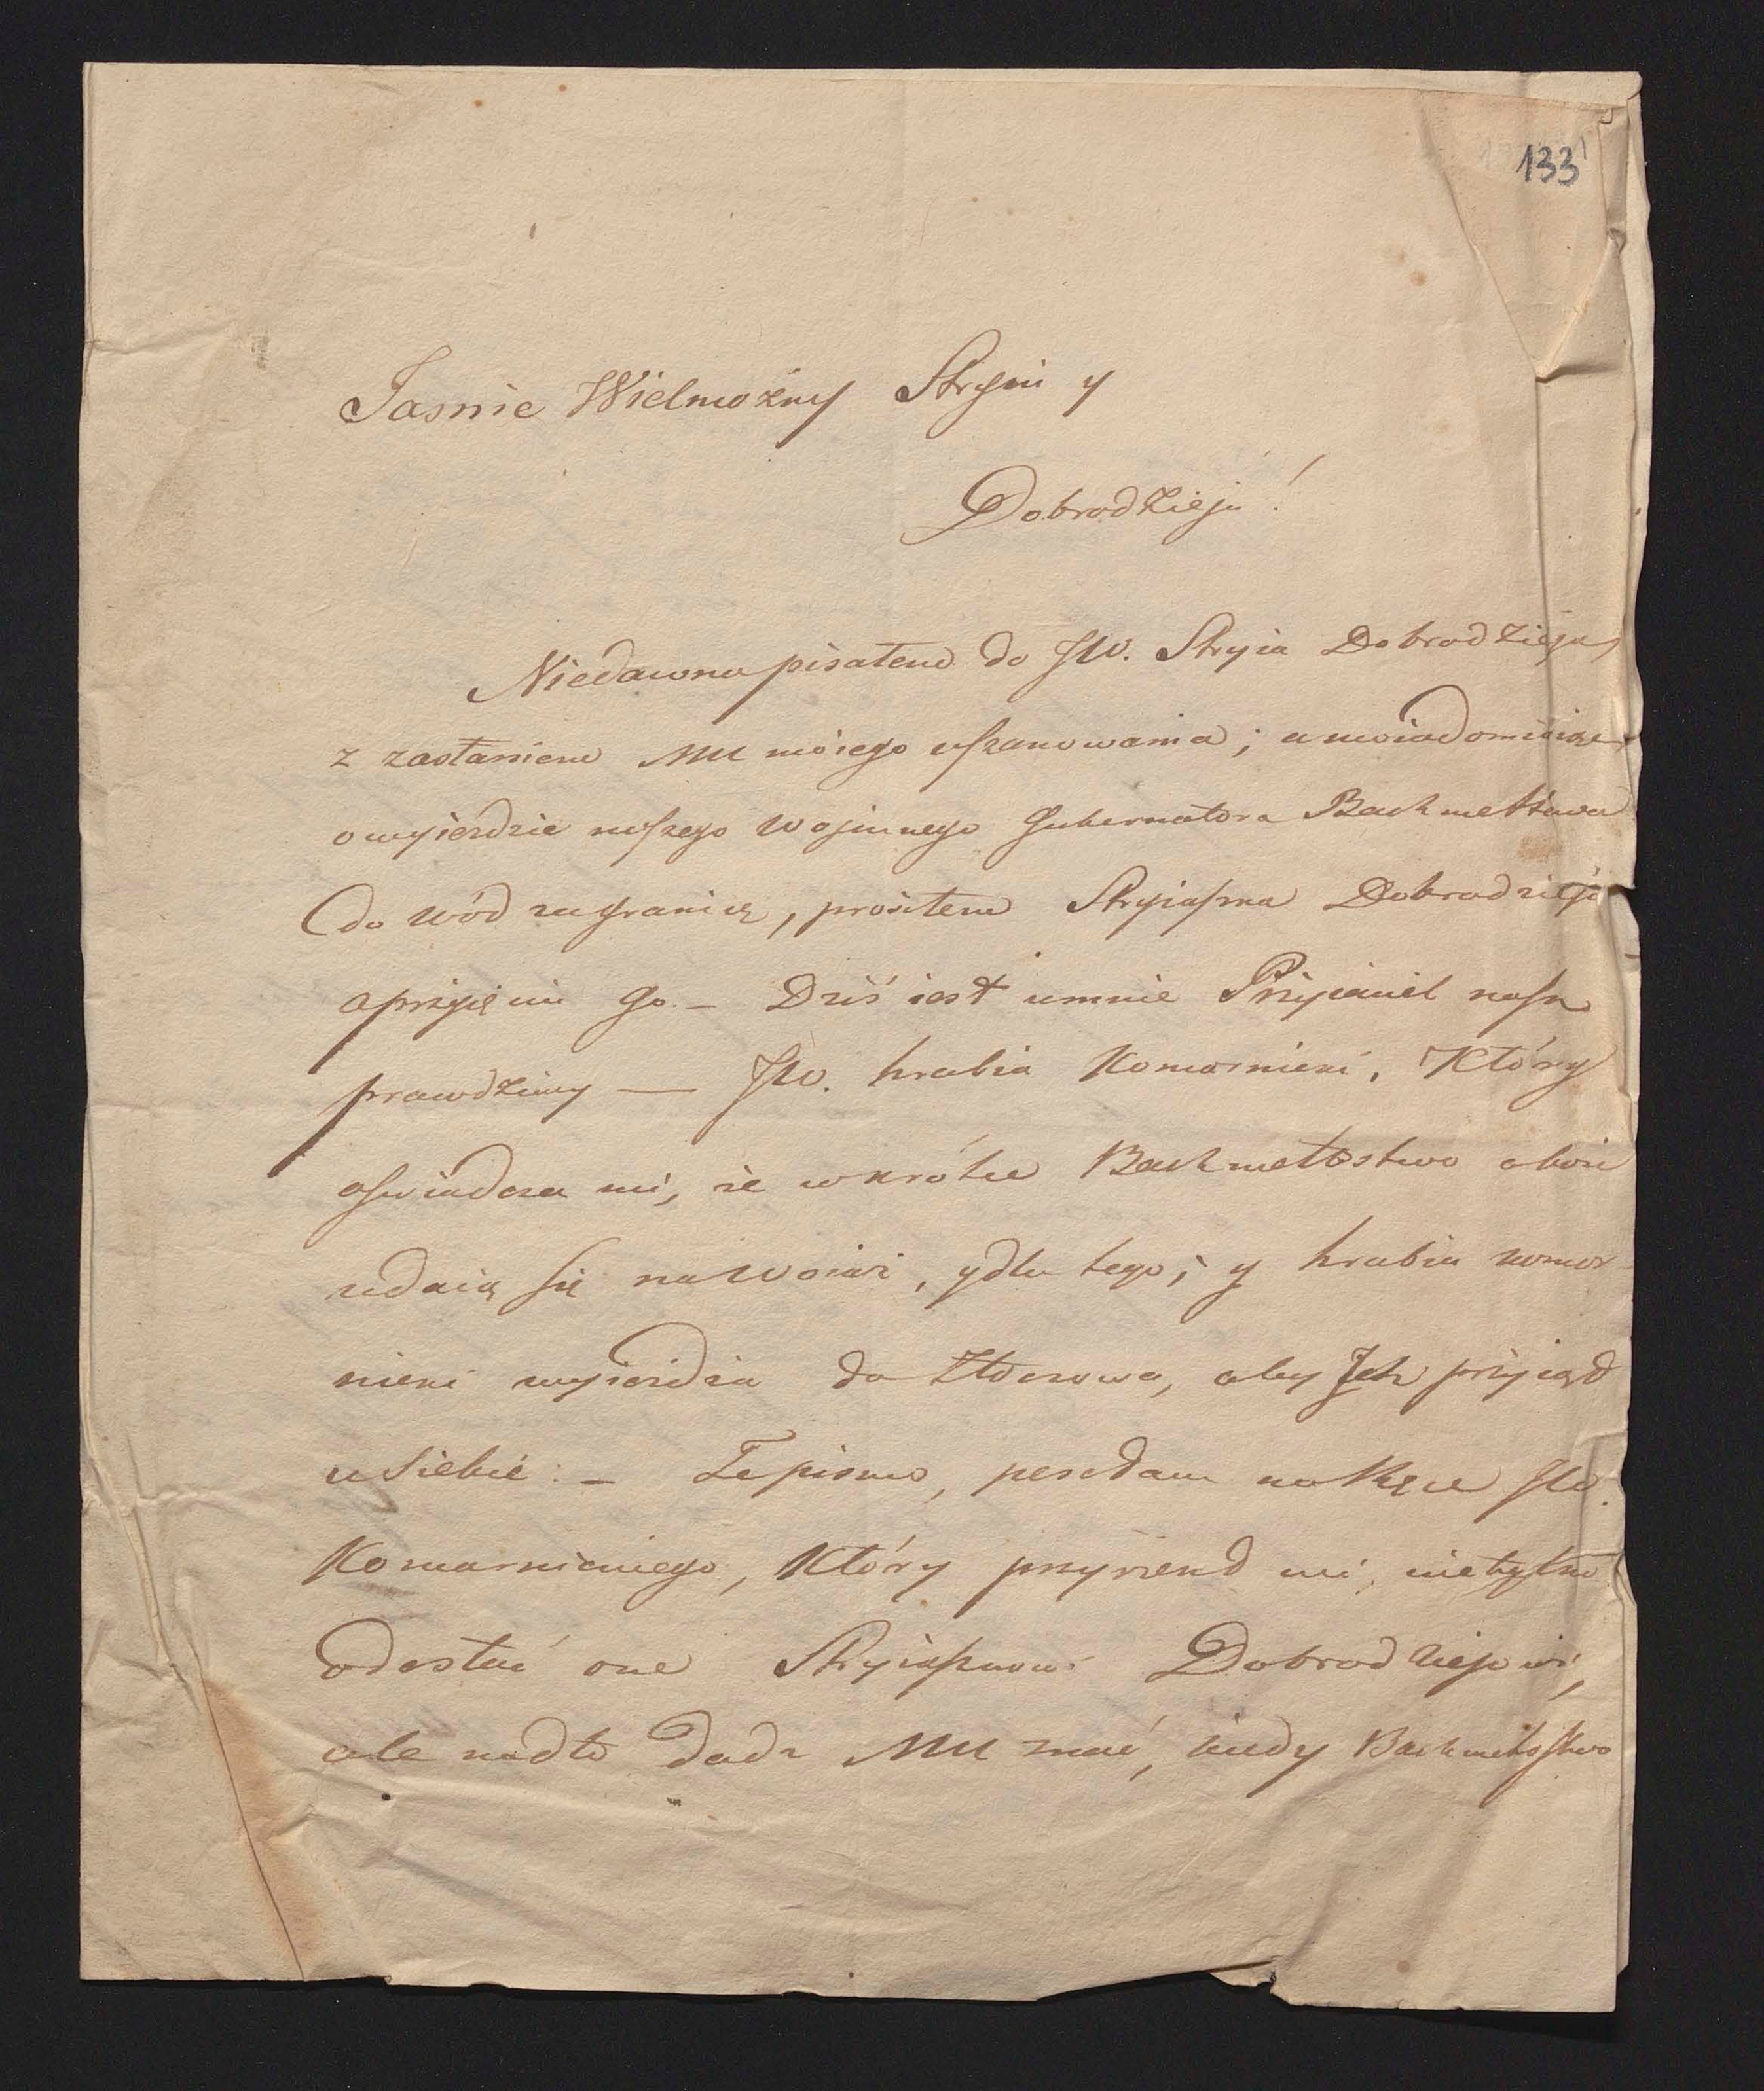 133
Jasnie Wielmożny Stryiu y
Dobrodzieju!
Niedawno pisałem do JW. Stryia Dobrodzieja,
z zasłaniem MU moiego uszanowania; a uwiadomiaiąc
o wyieździe naszego Wojennego Gubernatora Bachmettiewa
do wód zagranicę, prosiłem Stryiaszka Dobrodzieja
o przyięcie Go. – Dziś iest umnie Przyiaciel nasz
prawdziwy — JW. hrabia Komarnicki, Który
oswiadcza mi, że wkrótce Bachmettstwo oboie
udaią się na Woiaż, y dla tego, y hrabia Komar
nicki wyieżdża do Złoczowa, aby Ich przyiąć
u Siebie. – Te pismo, posełam na Ręce JW.
Komarnickiego, Który przyrzekł mi, nietylko
odesłać one Stryiaszkowi Dobrodziejowi,
ale nadto dadź MU znać, kiedy Bachmettstwo